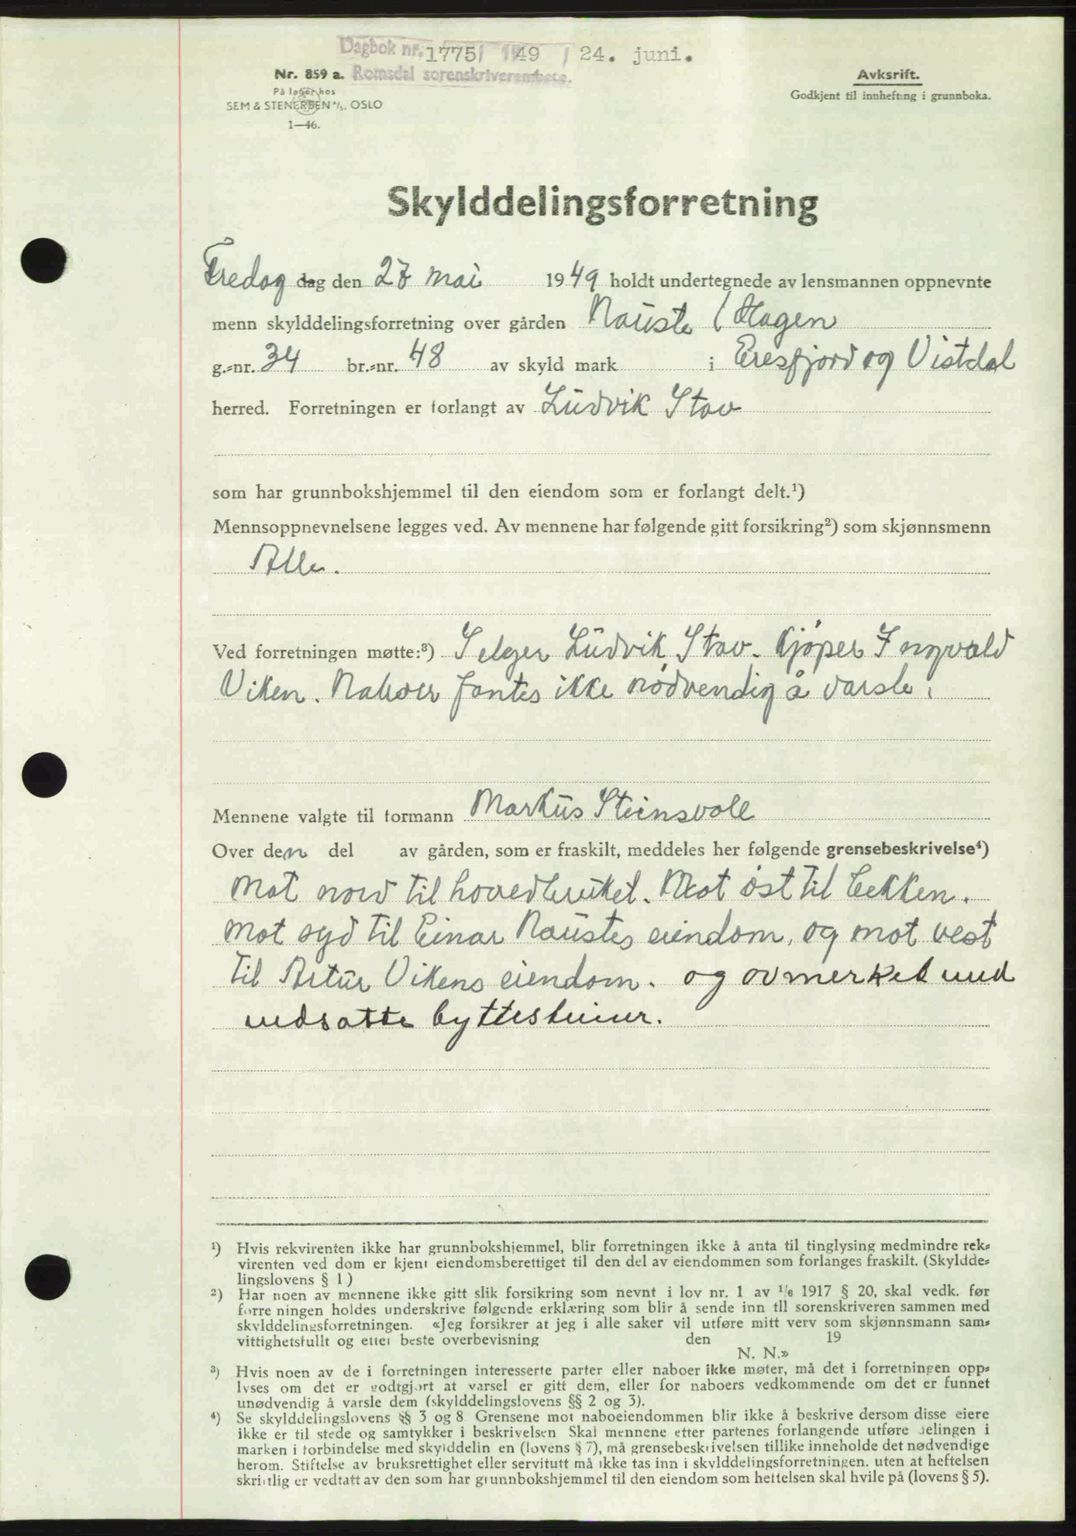 Dagbok nr. 1775/1949 / 24. juni.
Romsdal sorenskriverembete.
Nr. 859 a.
På lager hos
SEM & STENERSEN A/S. OSLO
1—46.
Avksrift.
Godkjent til innhefting i grunnboka.
Skylddelingsforretning
Fredag dag den 27 mai 1949 holdt undertegnede av lensmannen oppnevnte
menn skylddelingsforretning over gården Nauste / Hagen
g.-nr. 34 br.-nr. 48 av skyld mark i Eresfjord og Vistdal
herred. Forretningen er forlangt av Ludvik Stav
som har grunnbokshjemmel til den eiendom som er forlangt delt.¹)
Mennsoppnevnelsene legges ved. Av mennene har følgende gitt forsikring²) som skjønnsmenn
Alle.
Ved forretningen møtte:³) Selger Ludvik Stav. Kjøper Ingvald
Viken. Naboer fantes ikke nødvendig å varsle.
Mennene valgte til formann Markus Steinsvole
Over den del av gården, som er fraskilt, meddeles her følgende grensebeskrivelse⁴)
Mot nord til hovedbruket. Mot øst til bekken.
mot syd til Einar Naustes eiendom, og mot vest
til Artur Vikens eiendom. og avmerket med
nedsatte byttesteiner.
¹) Hvis rekvirenten ikke har grunnbokshjemmel, blir forretningen ikke å anta til tinglysing medmindre rek-
virenten ved dom er kjent eiendomsberettiget til den del av eiendommen som forlanges fraskilt. (Skyldde-
lingslovens § 1)
²) Har noen av mennene ikke gitt slik forsikring som nevnt i lov nr. 1 av ¹/₆ 1917 § 20, skal vedk. før
forretningen holdes underskrive følgende erklæring som blir å sende inn til sorenskriveren sammen med
skylddelingsforretningen. «Jeg forsikrer at jeg i alle saker vil utføre mitt verv som skjønnsmann sam-
vittighetsfullt og etter beste overbevisning den 19
N. N.»
³) Hvis noen av de i forretningen interesserte parter eller naboer ikke møter, må det i forretningen opp-
lyses om det er godtgjort at varsel er gitt dem, eller for naboers vedkommende om det er funnet
unødvendig å varsle dem (skylddelingslovens §§ 2 og 3).
⁴) Se skylddelingslovens §§ 3 og 8 Grensene mot naboeiendommen blir ikke å beskrive dersom disse eiere
ikke er til stede og samtykker i beskrivelsen Skal mennene etter partenes forlangende utføre delingen i
marken i forbindelse med skylddelingen (lovens § 7), må grensebeskrivelsen tillike inneholde det nødvendige
herom. Stiftelse av bruksrettighet eller servitutt må ikke tas inn i skylddelingsforretningen, uten at heftelsen
skriftlig er vedtatt av den som har grunnbokshjemmel til den eiendom som heftelsen skal hvile på (lovens § 5).